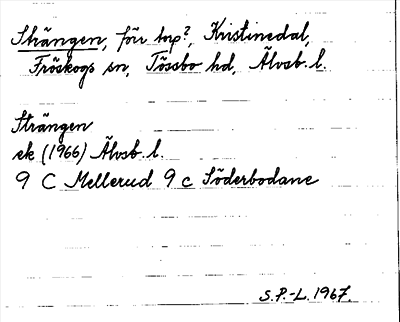 Strängen, förr torp?, Kristinedal,
Fröskogs sn, Tössbo hd, Älvsb. l.
Strängen
ek (1966) Älvsb. l.
9 C Mellerud 9 c Söderbodane
S.P.-L. 1967.